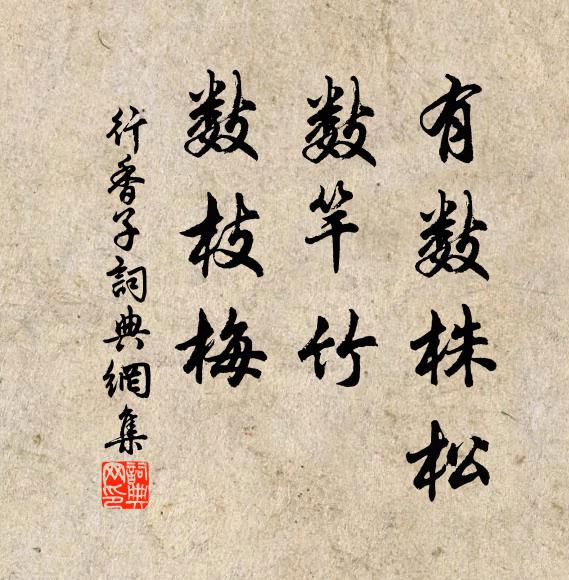 有數株松
數竿竹
數枝梅
行香子詞典網集
詞典网印